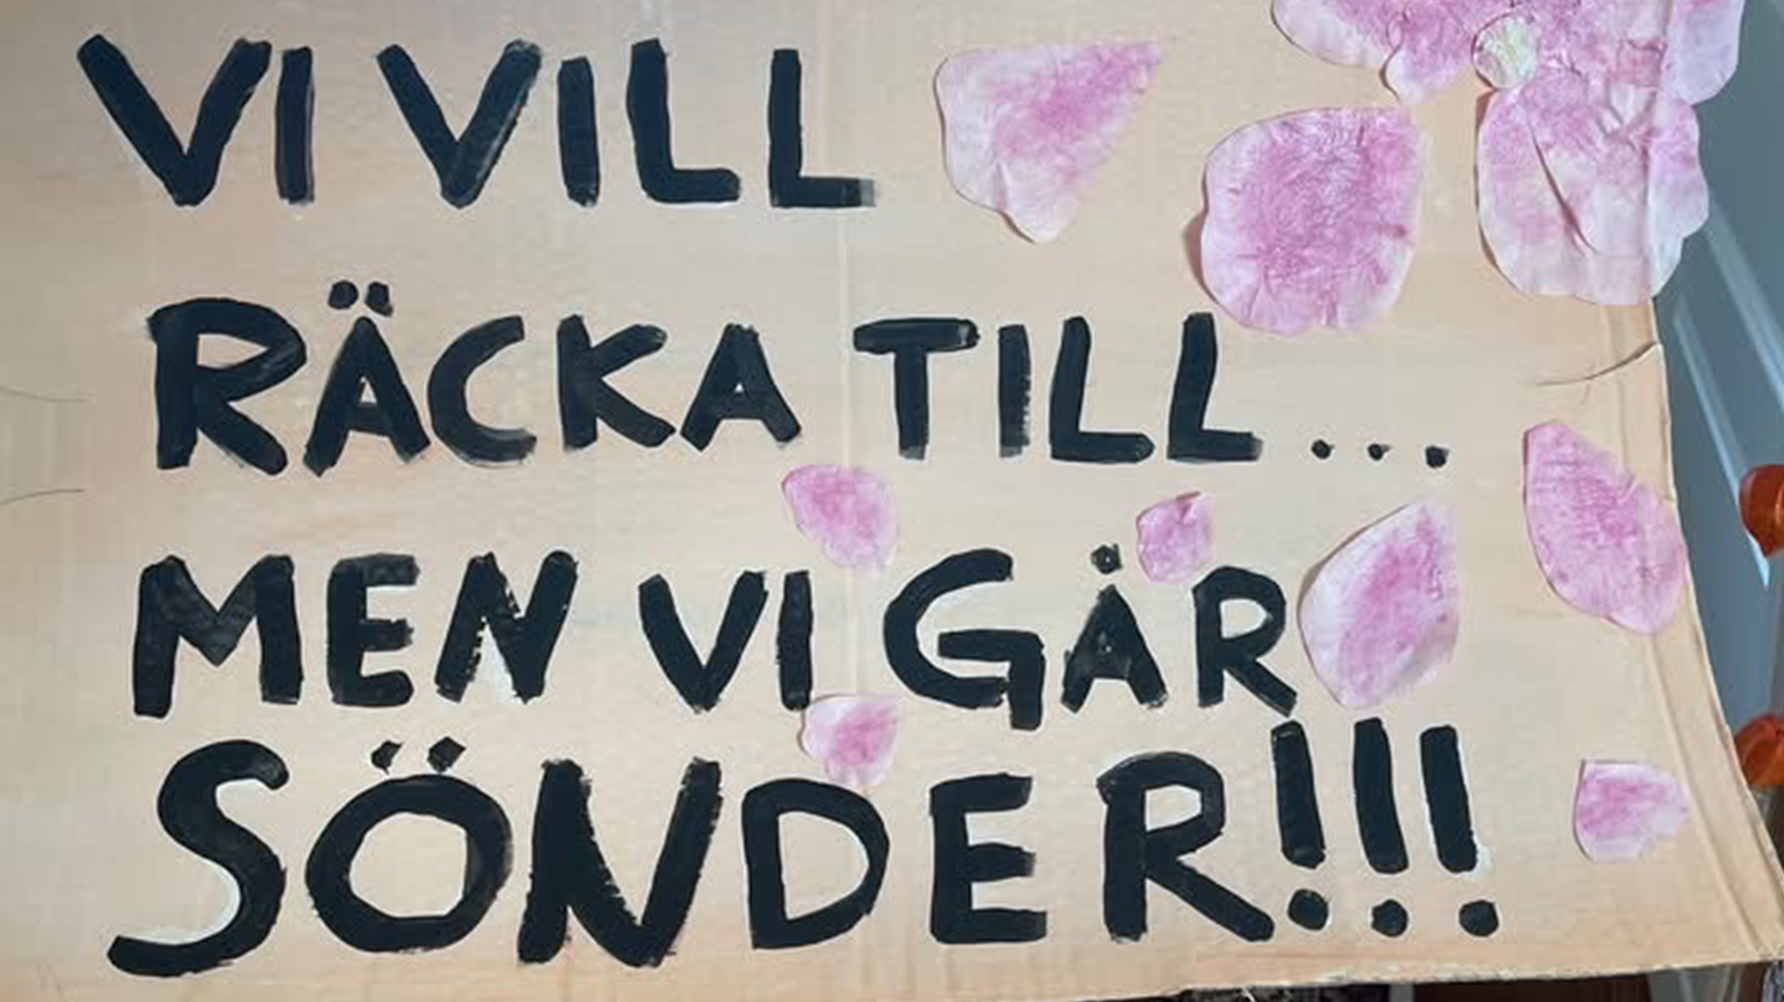 VI VILL
RÄCKA TILL...
MEN VI GÅR
SÖNDER!!!